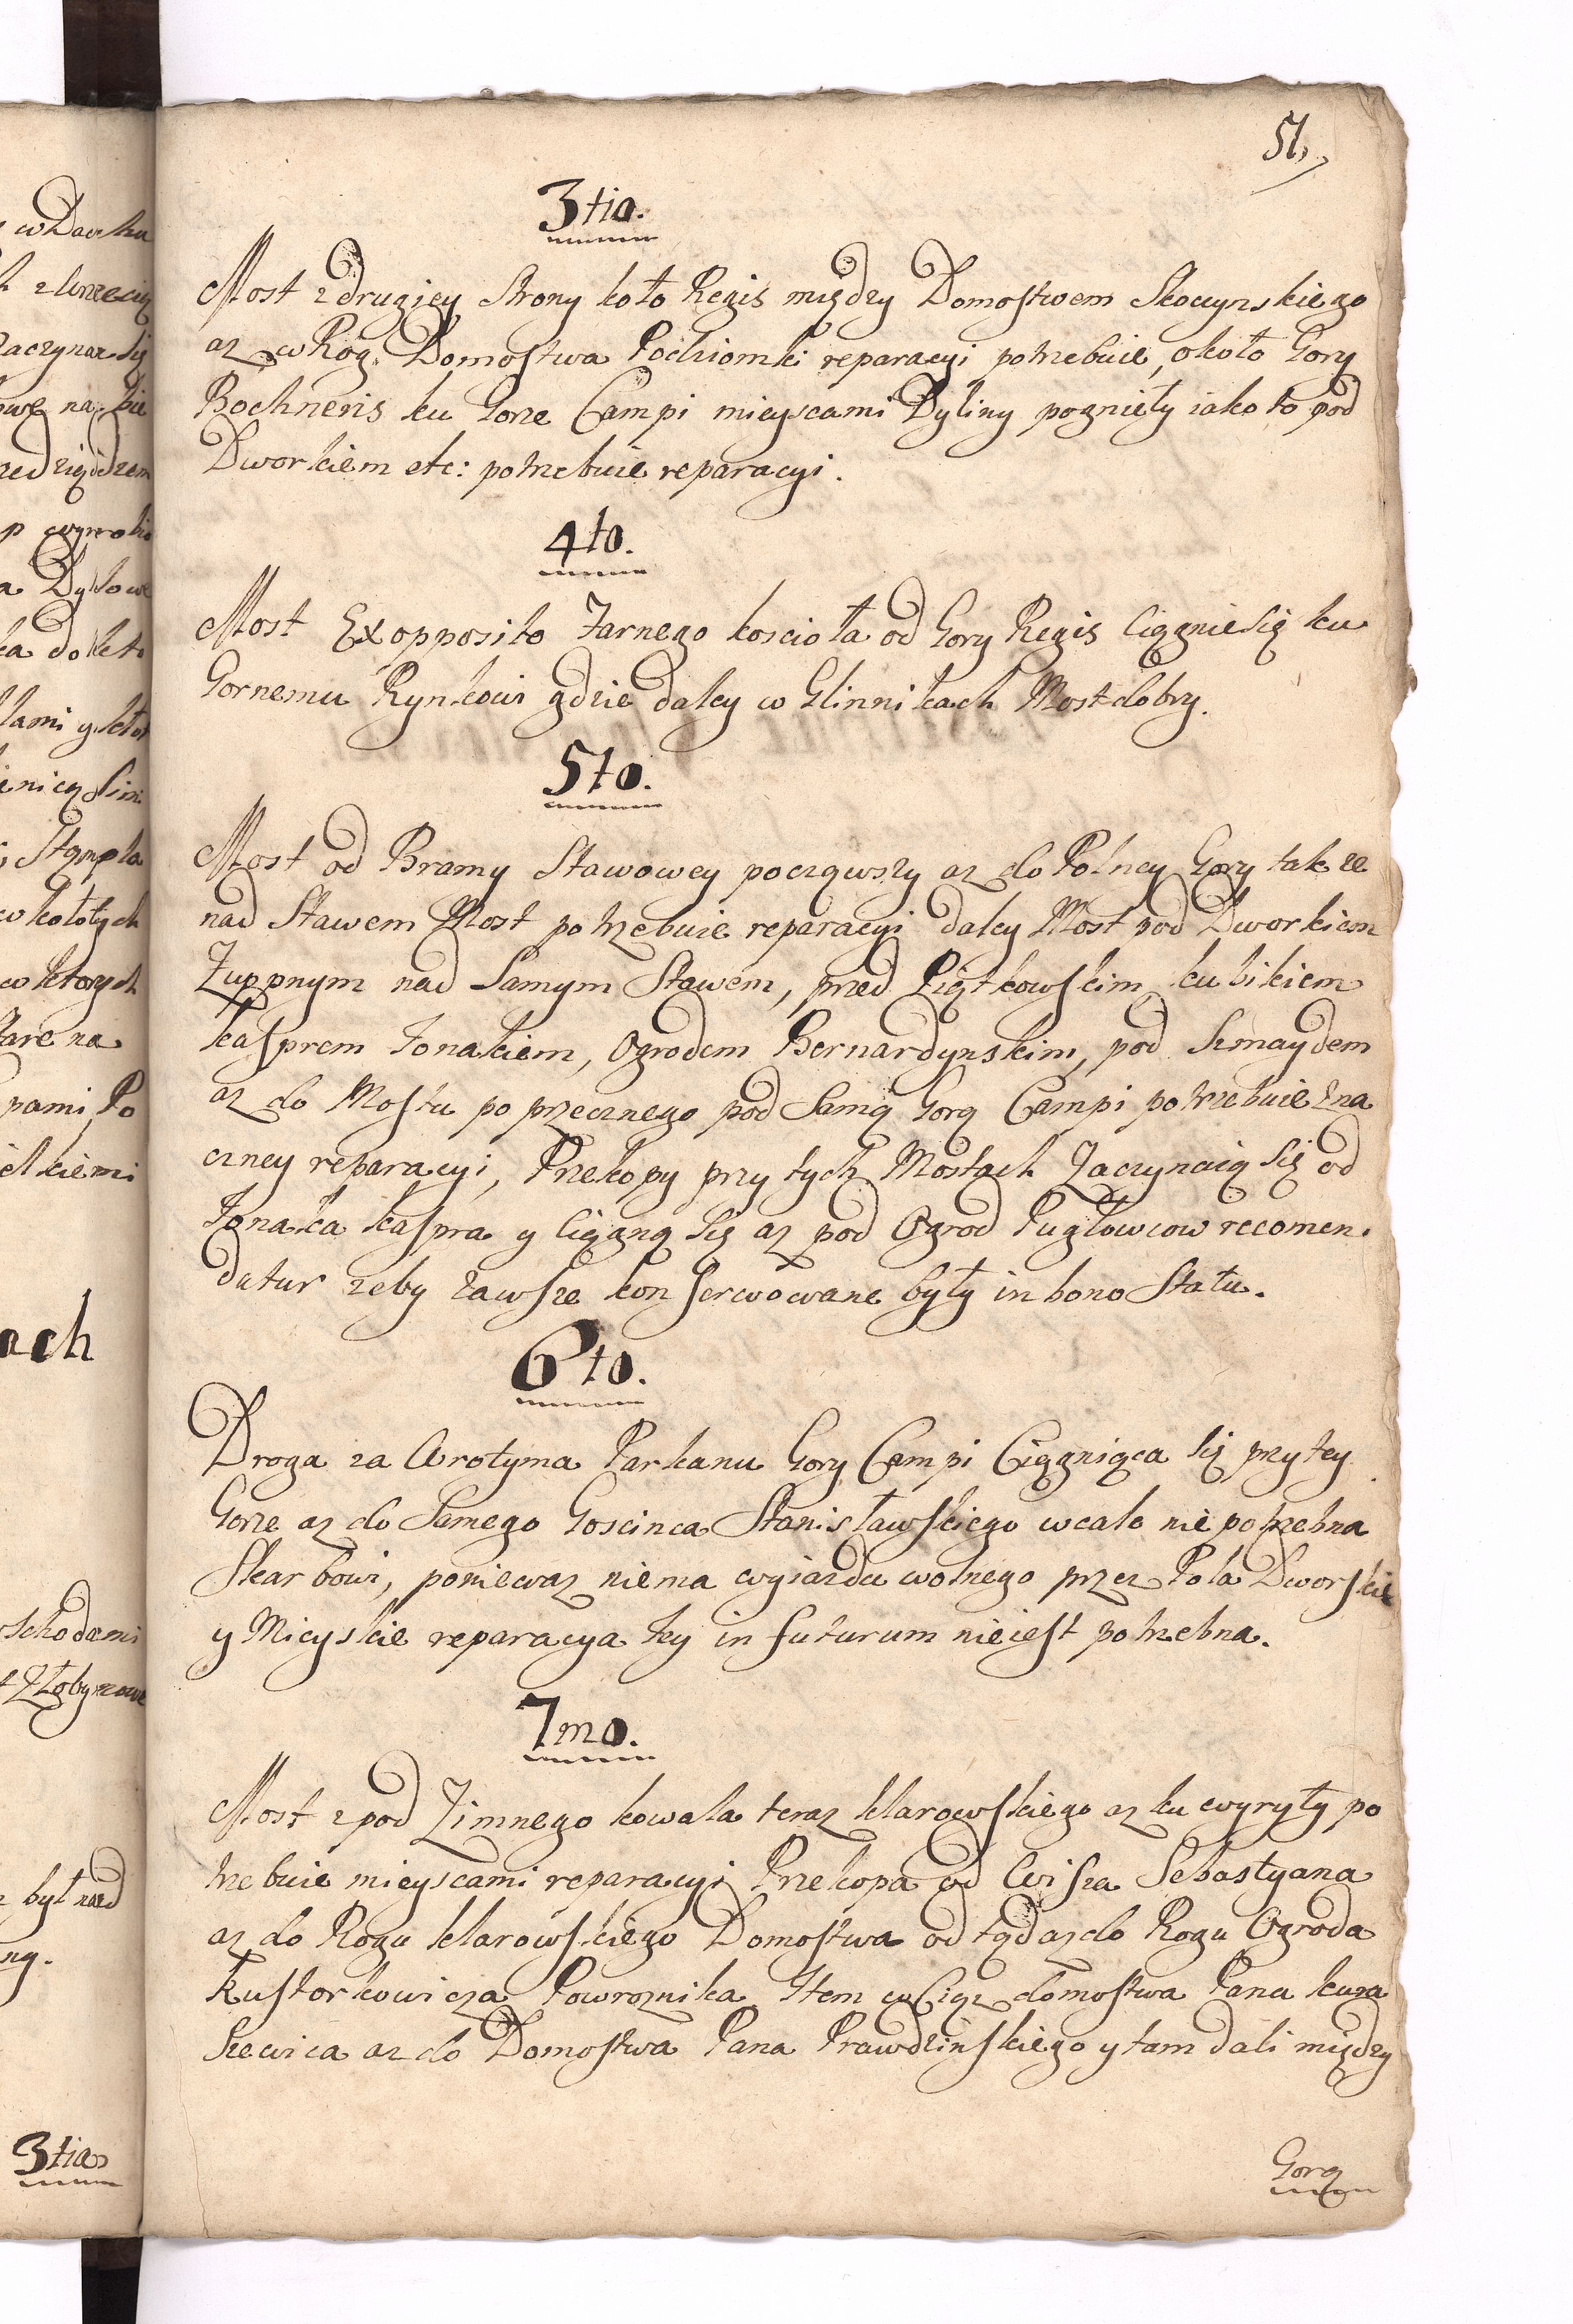 51.
3tio.
Most z drugiey Strony koło Regis między Domostwem Skoczynskiego
az w Rog Domostwa Pochiomki reparacyi potrzebuie, około Gory
Bochneris ku Gorze Campi mieyscami Dyliny pogniely iako to pod
Dworkiem etc: potrzebuie reparacyi.
4to.
Most Exopposito Farnego kościoła od Gory Regis Ciągnie się ku
Gornemu Rynkowi gdzie daley w Glinnikach Most dobry.
5to.
Most od Bramy Stawowey począwszy az do Polney Gory takze
nad Stawem Most potrzebuie reparacyi daley Most pod Dworkiem
Zuppnym nad Samym Stawem, przed Piątkowskim kubikiem
kasprem Jonakiem, Ogrodem Bernardynskim, pod Szmaydem
az do Mostu poprzecznego pod Samą Gorą Campi potrzebuie zna
czney reparacyi, Przekopy przy tych Mostach Zaczynaią się od
Jonaka kaspra y Ciągną się az pod Ogrod Pugłowcow recomen.
datur zeby zawsze konserwowane były in bono Statu.
6to.
Droga za Wrotyma Parkanu Gory Campi Ciągniąca się przy tey
Gorze az do Samego Goscinca Stanisławskiego wcale nie potrzebna
Skarbowi, poniewaz niema wyiazdu wolnego przez Pola Dworskie
y Mieyskie reparacya tey in futurum nieiest potrzebna.
7mo.
Most z pod Zimnego kowala teraz klarowskiego az ku wyryty po
trzebuie mieyscami reparacyi Przekopa od Cwisza Sebastyana
az do Rogu klarowskiego Domostwa od tąd az do Rogu Ogroda
kustorkowicza Powroznika Item w Ciąz domostwa Pana kura
Szewica az do Domostwa Pana Prawdzinskiego y tam dali między
Gorą